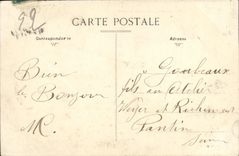 99
CARTE POSTALE
Correspondance
Adresse
Bien
le Bonjour
M.
Gaubeaux
fils au Atelier
Weyer et Richemond
Pantin
Seine